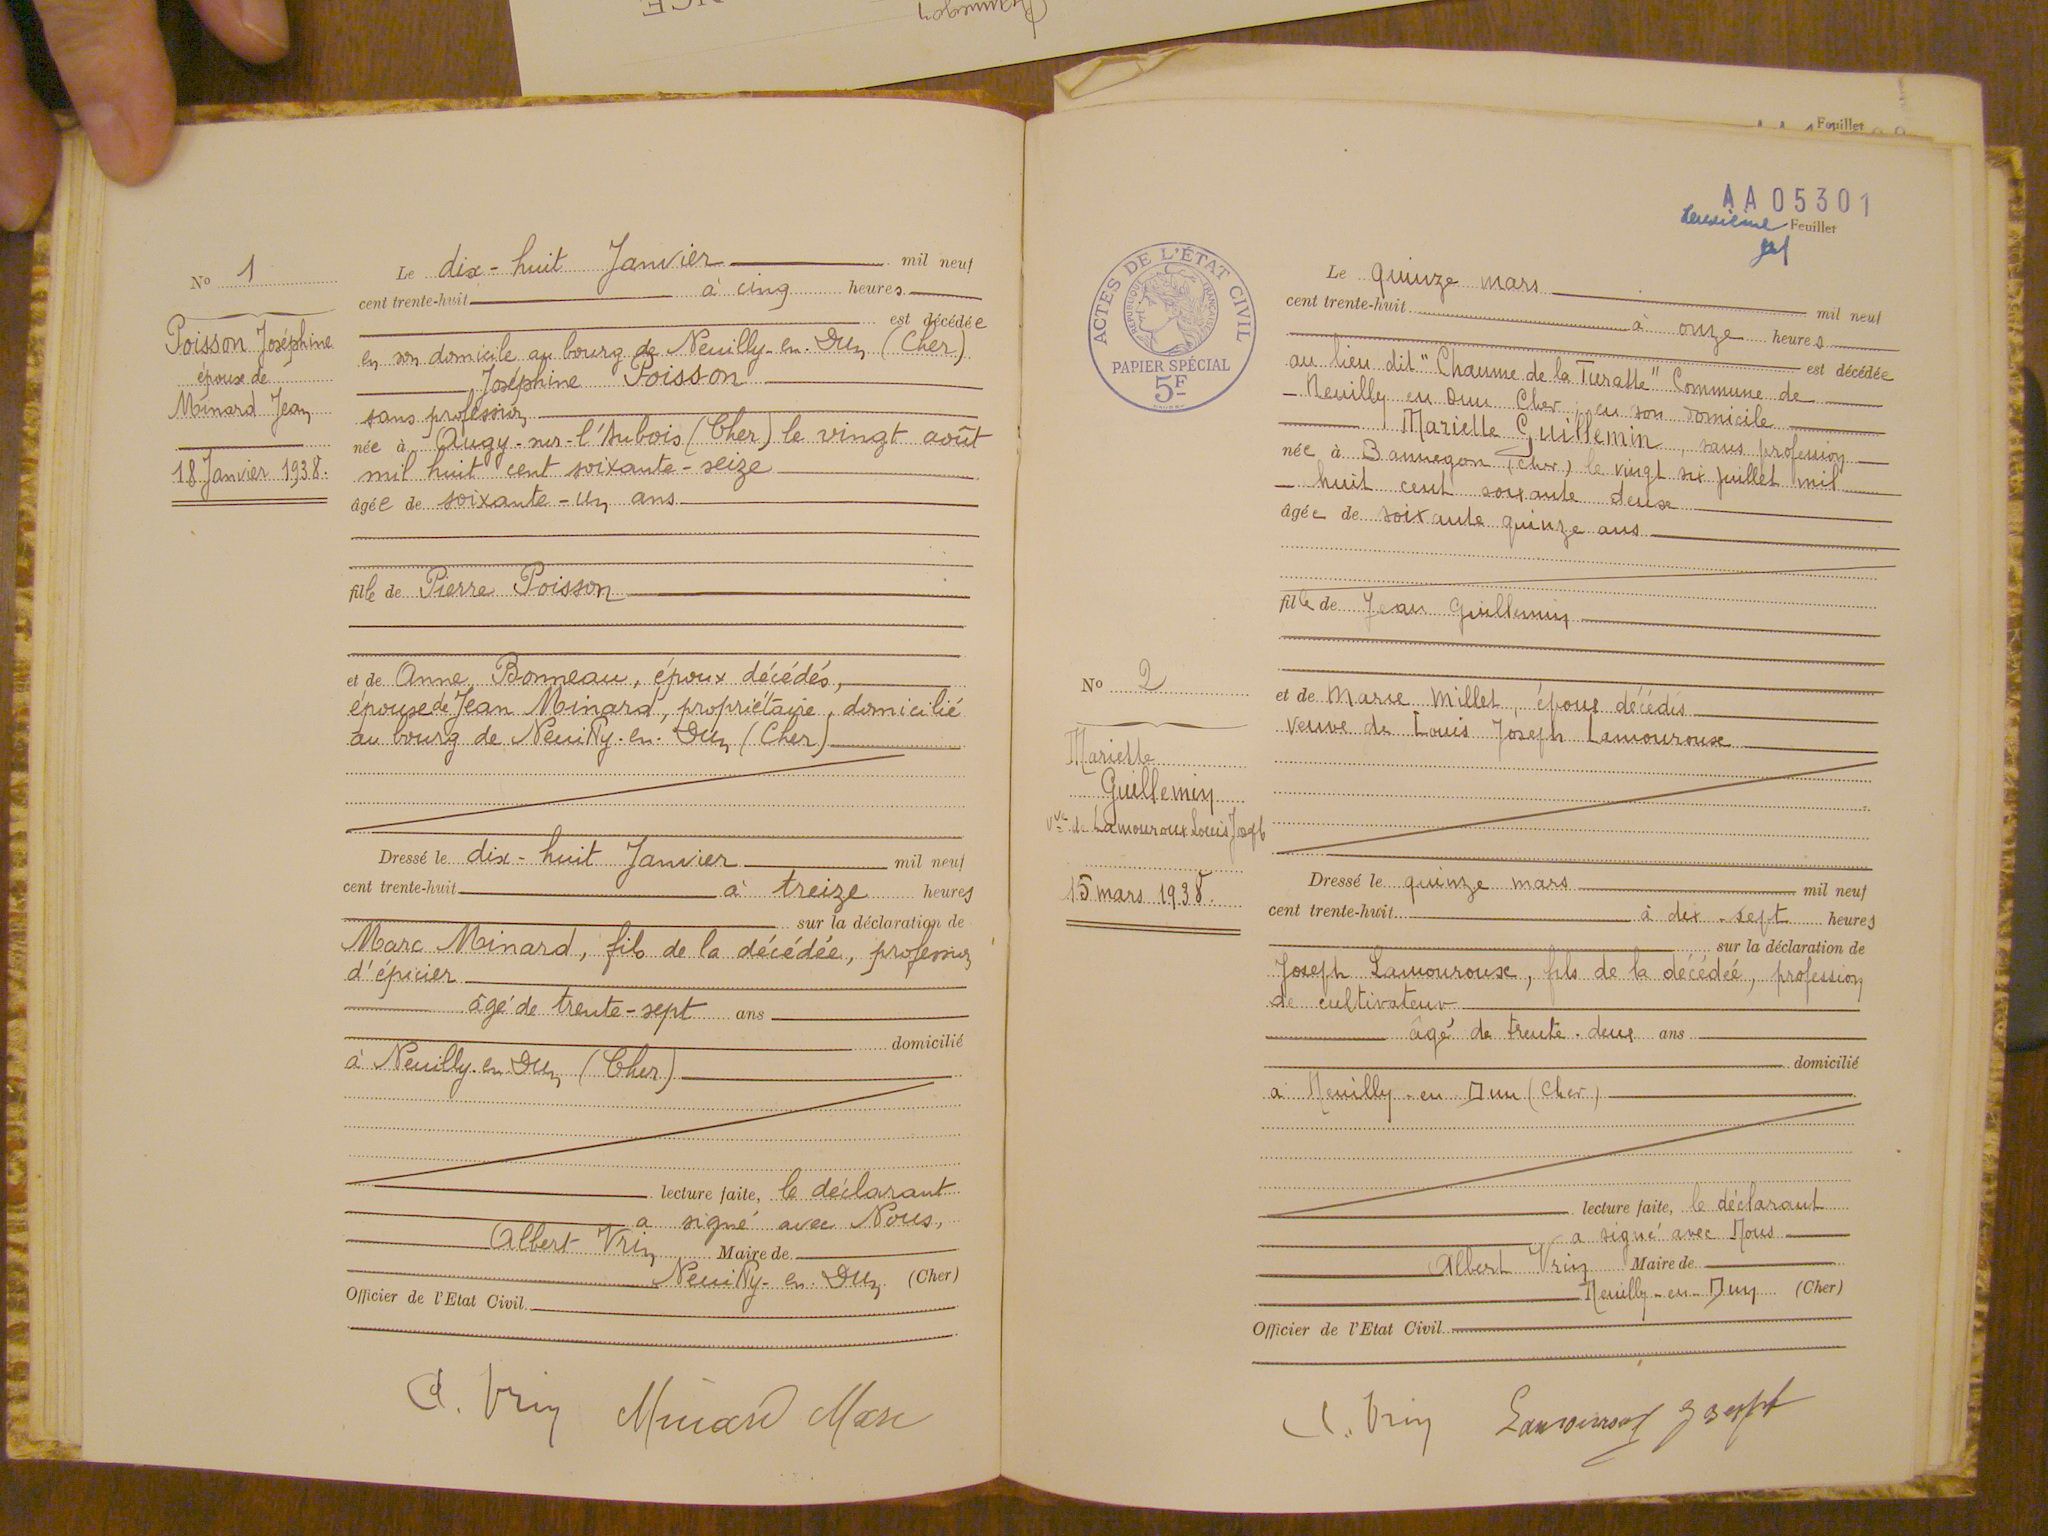 Feuillet
N° 1
Poisson Joséphine
épouse de
Minard Jean
18 Janvier 1938.
Le dix-huit Janvier mil neuf
cent trente-huit à cinq heures
est décédée
en son domicile au bourg de Neuilly-en-Dun (Cher)
Joséphine Poisson
sans profession
née à Augy-sur-l'Aubois (Cher) le vingt août
mil huit cent soixante-seize
âgée de soixante-un ans
fille de Pierre Poisson
et de Anne Bonneau, époux décédés,
épouse de Jean Minard, propriétaire, domicilié
au bourg de Neuilly-en-Dun (Cher)
Dressé le dix-huit Janvier mil neuf
cent trente-huit à treize heures
sur la déclaration de
Marc Minard, fils de la décédée, profession
d'épicier
âgé de trente-sept ans
domicilié
à Neuilly-en-Dun (Cher)
lecture faite, le déclarant
a signé avec Nous,
Albert Vrin Maire de
Neuilly-en-Dun (Cher)
Officier de l'Etat Civil
A. Vrin Minard Marc
AA05301
deuxième Feuillet
ACTES DE L'ÉTAT CIVIL
RÉPUBLIQUE FRANÇAISE
PAPIER SPÉCIAL
5F
N° 2
Mariette
Guillemin
Vve de Lamouroux Louis Joseph
15 mars 1938.
Le quinze mars mil neuf
cent trente-huit à onze heures
est décédée
au lieu dit "Chaume de la Commune de
Neuilly en Dun Cher, en son domicile
Mariette Guillemin, sans profession
née à Bannegon (Cher) le vingt six juillet mil
huit cent soixante deux
âgée de soixante quinze ans
fille de Jean Guillemin
et de Marie Millet, époux décédés
veuve de Louis Joseph Lamouroux
Dressé le quinze mars mil neuf
cent trente-huit à dix-sept heures
sur la déclaration de
Joseph Lamouroux, fils de la décédée, profession
de cultivateur
âgé de trente-deux ans
domicilié
à Neuilly-en-Dun (Cher)
lecture faite, le déclarant
a signé avec Nous
Albert Vrin Maire de
Neuilly-en-Dun (Cher)
Officier de l'Etat Civil
A. Vrin Lamouroux Joseph